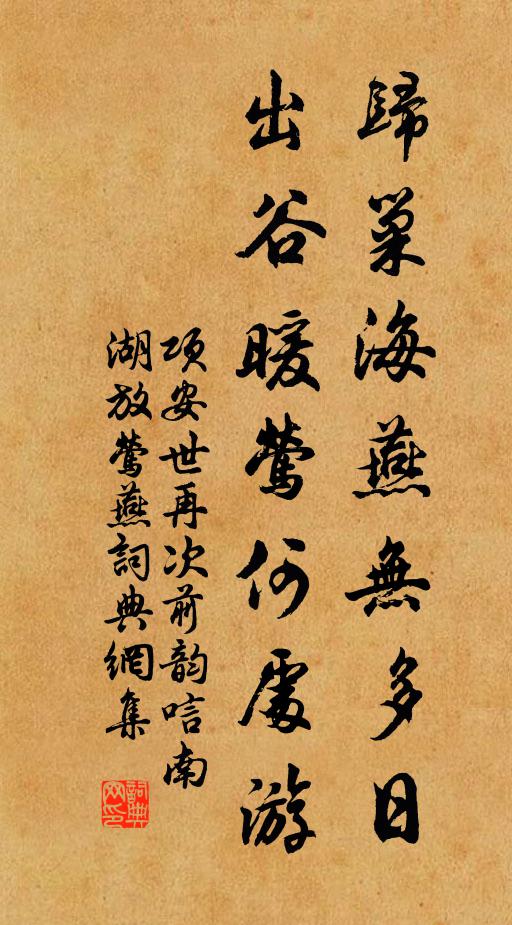 歸巢海燕無多日
出谷暖鶯何處游
項安世再次前韵唁南
湖放鶯燕詞典網集
詞典網印